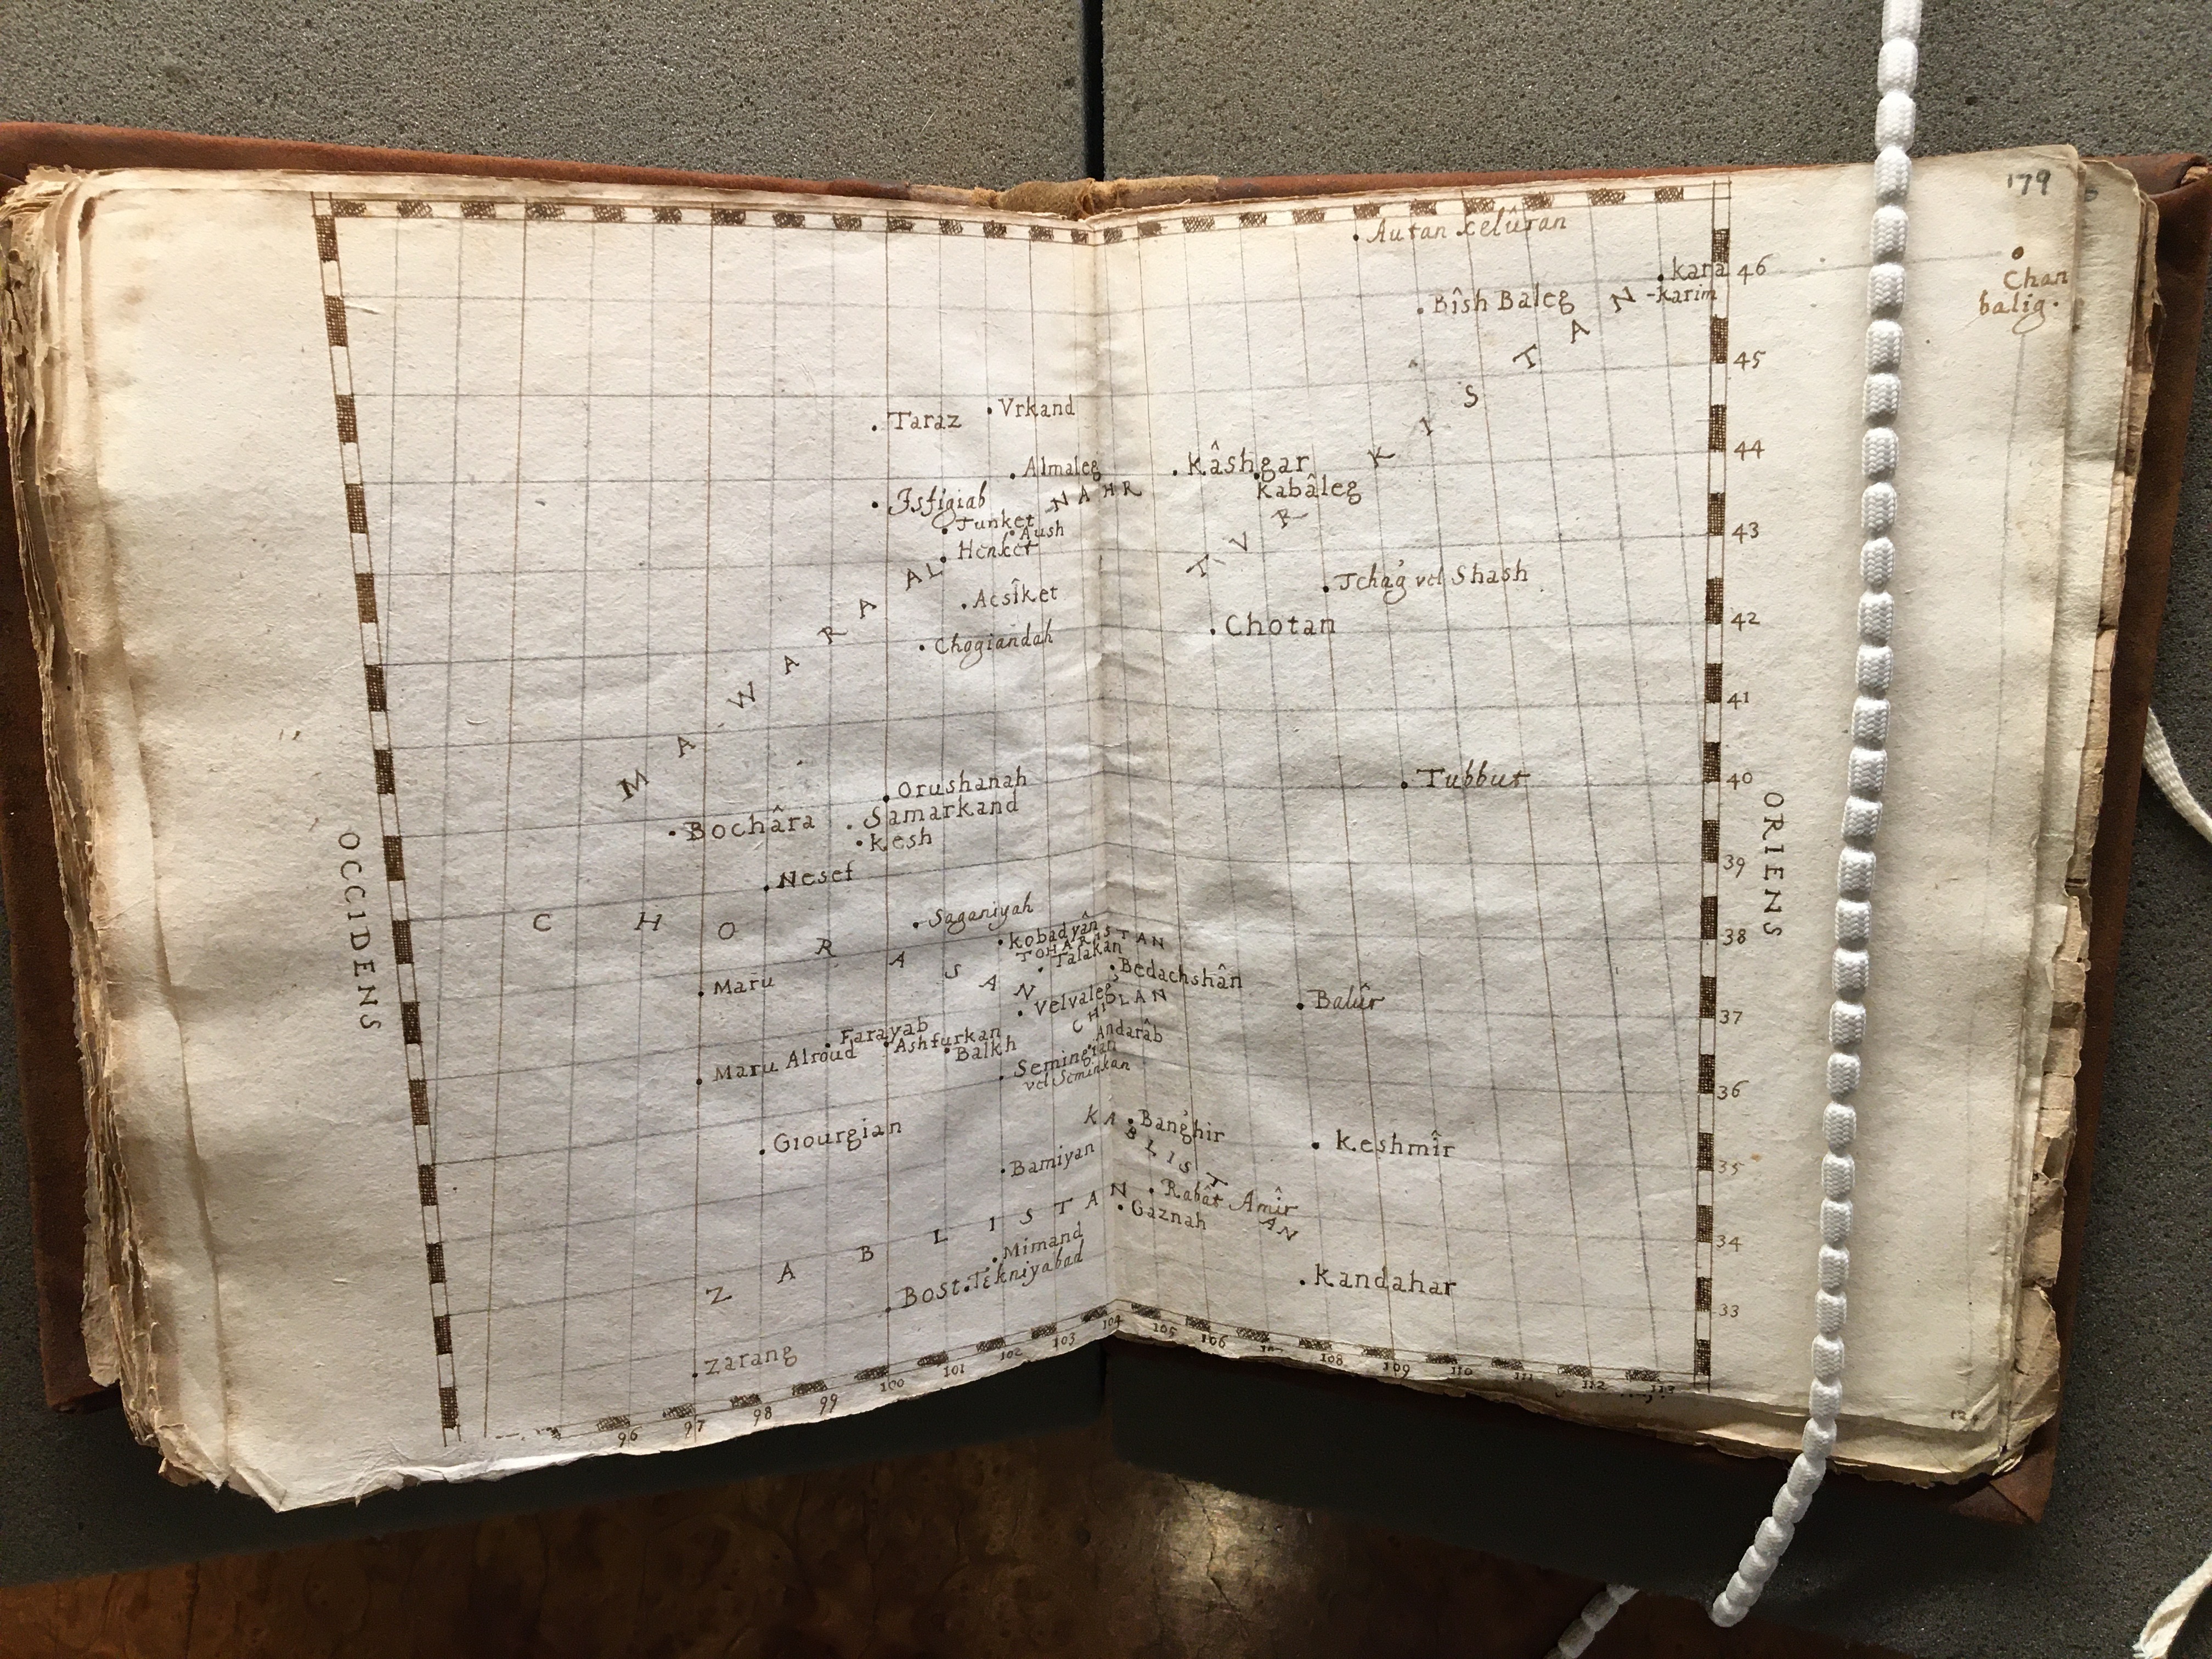 179
Autan xelûran
kara
-karim
46
Chan
balig.
Bîsh Baleg
45
Vrkand
Taraz
44
Almaleg
Kâshgar
Kabâleg
TVRKISTAN
Isfigiab
MAWARA AL NAHR
Tunket
Aush
Henket
43
Tchag vel Shash
Acsîket
Chotan
42
Chogiandah
41
Orushanah
Tubbut
40
Bochâra
Samarkand
Kesh
OCCIDENS
ORIENS
39
Nesef
CHORASAN
Saganiyah
Kobadyân
TOHARISTAN
Talakan
38
Bedachshân
Maru
Velvaleg
Balûr
37
Farayab
Andarâb
Maru Alroud
Ashfurkan
Balkh
Semingian
vel Seminkan
36
Giourgian
KABLISTAN
Banghir
Keshmîr
35
Bamiyan
Rabât Amîr
ZABLISTAN
Gaznah
34
Mimand
Bost
Tekniyabad
Kandahar
33
Zarang
96 97 98 99 100 101 102 103 104 105 106 108 109 110 111 112 113